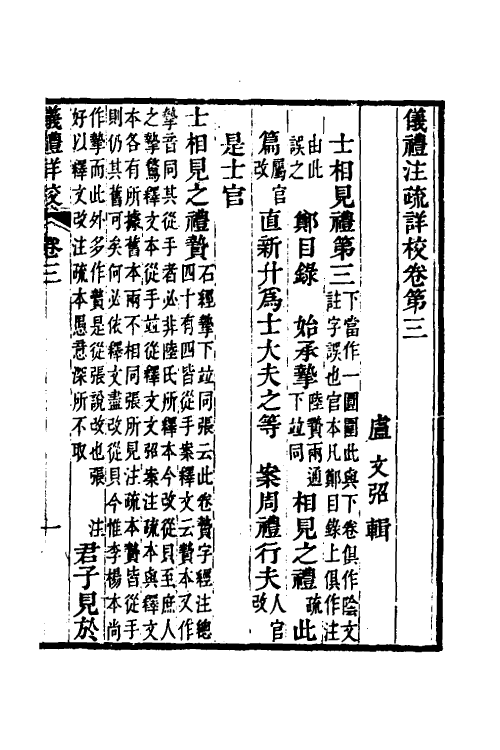 儀禮注疏詳校卷第三
盧文弨輯
士相見禮第三下當作一圓圍此與下卷俱作陰文
註字誤也官本凡鄭目錄上俱作注
由此
誤之鄭目錄 始承摯陸贄兩通
下竝同相見之禮疏此
篇屬官
改直新升爲士大夫之等 案周禮行夫人官
改
是士官
士相見之禮贄石經摯下竝同張云此卷贄字經注總
四十有四皆從手案釋文云贄本又作
摯音同其從手者必非陸氏所釋本今改從貝至庶人
之摯鶩釋文本從手竝從釋文文弨案注疏本與釋文
本各有所據舊本兩不相同張所見注疏本贄皆從手
則仍其舊可矣何必依釋文盡改從貝今惟李楊本尚
作摯而此外多作贄是從張說改也張
好以釋文改注疏本愚意深所不取 注君子見於
儀禮詳校 卷三 一